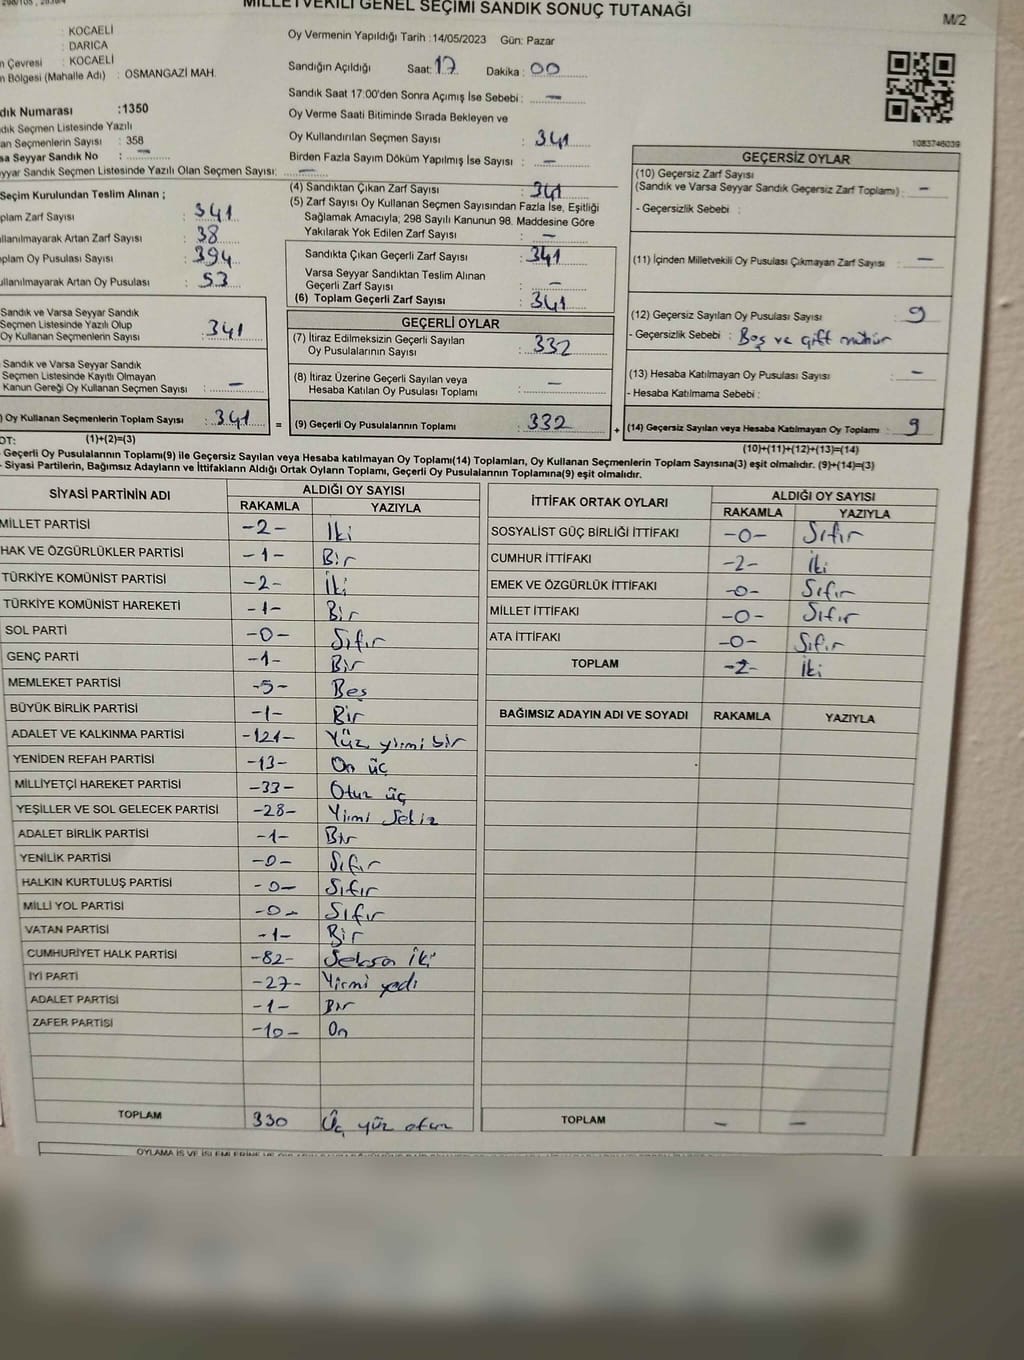 MİLLETVEKİLİ GENEL SEÇİMİ SANDIK SONUÇ TUTANAĞI
M/2
: KOCAELİ
: DARICA
n Çevresi : KOCAELİ
n Bölgesi (Mahalle Adı) : OSMANGAZİ MAH.
dık Numarası :1350
dık Seçmen Listesinde Yazılı
an Seçmenlerin Sayısı : 358
sa Seyyar Sandık No : —
yyar Sandık Seçmen Listesinde Yazılı Olan Seçmen Sayısı: —
Seçim Kurulundan Teslim Alınan ;
plam Zarf Sayısı : 341
llanılmayarak Artan Zarf Sayısı : 38
plam Oy Pusulası Sayısı : 394
ullanılmayarak Artan Oy Pusulası : 53
Sandık ve Varsa Seyyar Sandık
Seçmen Listesinde Yazılı Olup
Oy Kullanan Seçmenlerin Sayısı : 341
Sandık ve Varsa Seyyar Sandık
Seçmen Listesinde Kayıtlı Olmayan
Kanun Gereği Oy Kullanan Seçmen Sayısı : —
) Oy Kullanan Seçmenlerin Toplam Sayısı : 341
Oy Vermenin Yapıldığı Tarih :14/05/2023 Gün: Pazar
Sandığın Açıldığı Saat: 17 Dakika : 00
Sandık Saat 17:00'den Sonra Açımış İse Sebebi : —
Oy Verme Saati Bitiminde Sırada Bekleyen ve
Oy Kullandırılan Seçmen Sayısı : 341
Birden Fazla Sayım Döküm Yapılmış İse Sayısı : —
(4) Sandıktan Çıkan Zarf Sayısı : 341
(5) Zarf Sayısı Oy Kullanan Seçmen Sayısından Fazla İse, Eşitliği
Sağlamak Amacıyla; 298 Sayılı Kanunun 98. Maddesine Göre
Yakılarak Yok Edilen Zarf Sayısı : —
Sandıkta Çıkan Geçerli Zarf Sayısı : 341
Varsa Seyyar Sandıktan Teslim Alınan
Geçerli Zarf Sayısı : —
(6) Toplam Geçerli Zarf Sayısı : 341
GEÇERLİ OYLAR
(7) İtiraz Edilmeksizin Geçerli Sayılan
Oy Pusulalarının Sayısı : 332
(8) İtiraz Üzerine Geçerli Sayılan veya
Hesaba Katılan Oy Pusulası Toplamı : —
= (9) Geçerli Oy Pusulalarının Toplamı : 332
1083746039
GEÇERSİZ OYLAR
(10) Geçersiz Zarf Sayısı
(Sandık ve Varsa Seyyar Sandık Geçersiz Zarf Toplamı) : —
- Geçersizlik Sebebi :
(11) İçinden Milletvekili Oy Pusulası Çıkmayan Zarf Sayısı : —
(12) Geçersiz Sayılan Oy Pusulası Sayısı : 9
- Geçersizlik Sebebi : Boş ve çift mühür
(13) Hesaba Katılmayan Oy Pusulası Sayısı : —
- Hesaba Katılmama Sebebi :
+ (14) Geçersiz Sayılan veya Hesaba Katılmayan Oy Toplamı : 9
OT: (1)+(2)=(3)
(10)+(11)+(12)+(13)=(14)
- Geçerli Oy Pusulalarının Toplamı(9) ile Geçersiz Sayılan veya Hesaba katılmayan Oy Toplamı(14) Toplamları, Oy Kullanan Seçmenlerin Toplam Sayısına(3) eşit olmalıdır. (9)+(14)=(3)
- Siyasi Partilerin, Bağımsız Adayların ve İttifakların Aldığı Ortak Oyların Toplamı, Geçerli Oy Pusulalarının Toplamına(9) eşit olmalıdır.
SİYASİ PARTİNİN ADI ALDIĞI OY SAYISI
RAKAMLA YAZIYLA
MİLLET PARTİSİ -2- İki
HAK VE ÖZGÜRLÜKLER PARTİSİ -1- Bir
TÜRKİYE KOMÜNİST PARTİSİ -2- İki
TÜRKİYE KOMÜNİST HAREKETİ -1- Bir
SOL PARTİ -0- Sıfır
GENÇ PARTİ -1- Bir
MEMLEKET PARTİSİ -5- Beş
BÜYÜK BİRLİK PARTİSİ -1- Bir
ADALET VE KALKINMA PARTİSİ -121- Yüz yirmi bir
YENİDEN REFAH PARTİSİ -13- On üç
MİLLİYETÇİ HAREKET PARTİSİ -33- Otuz üç
YEŞİLLER VE SOL GELECEK PARTİSİ -28- Yirmi Sekiz
ADALET BİRLİK PARTİSİ -1- Bir
YENİLİK PARTİSİ -0- Sıfır
HALKIN KURTULUŞ PARTİSİ -0- Sıfır
MİLLİ YOL PARTİSİ -0- Sıfır
VATAN PARTİSİ -1- Bir
CUMHURİYET HALK PARTİSİ -82- Seksan iki
İYİ PARTİ -27- Yirmi yedi
ADALET PARTİSİ -1- Bir
ZAFER PARTİSİ -10- On
TOPLAM 330 Üç yüz otuz
İTTİFAK ORTAK OYLARI ALDIĞI OY SAYISI
RAKAMLA YAZIYLA
SOSYALİST GÜÇ BİRLİĞİ İTTİFAKI -0- Sıfır
CUMHUR İTTİFAKI -2- İki
EMEK VE ÖZGÜRLÜK İTTİFAKI -0- Sıfır
MİLLET İTTİFAKI -0- Sıfır
ATA İTTİFAKI -0- Sıfır
TOPLAM -2- İki
BAĞIMSIZ ADAYIN ADI VE SOYADI RAKAMLA YAZIYLA
TOPLAM — —